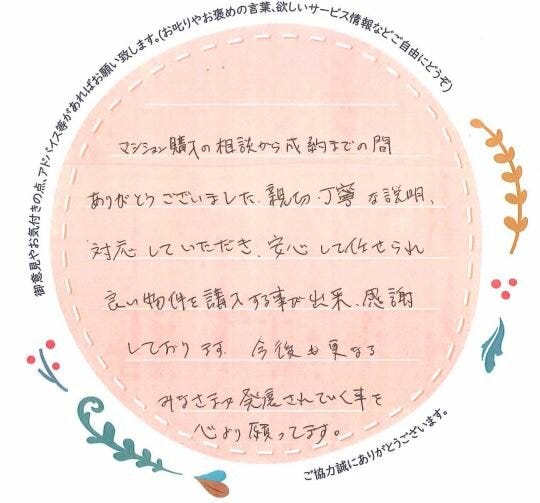 御意見やお気付きの点、アドバイス等があればお願い致します。(お叱りやお褒めの言葉、欲しいサービス情報などご自由にどうぞ)
マンション購入の相談から成約までの間
ありがとうございました。親切、丁寧な説明、
対応していただき、安心して任せられ
良い物件を購入する事が出来、感謝
しております。今後も更なる
みなさまが発展されていく事を
心より願ってます。
ご協力誠にありがとうございます。